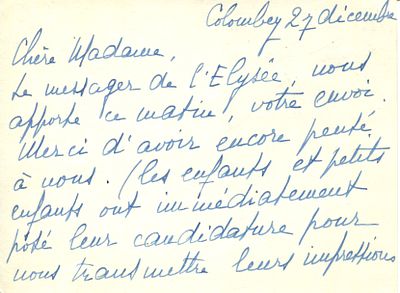 Colombey 27 décembre
Chère Madame,
Le messager de l'Elysée, nous
apporte ce matin, votre envoi.
Merci d'avoir encore pensé
à nous. (les enfants et petits
enfants ont immédiatement
posé leur candidature pour
nous transmettre leurs impressions